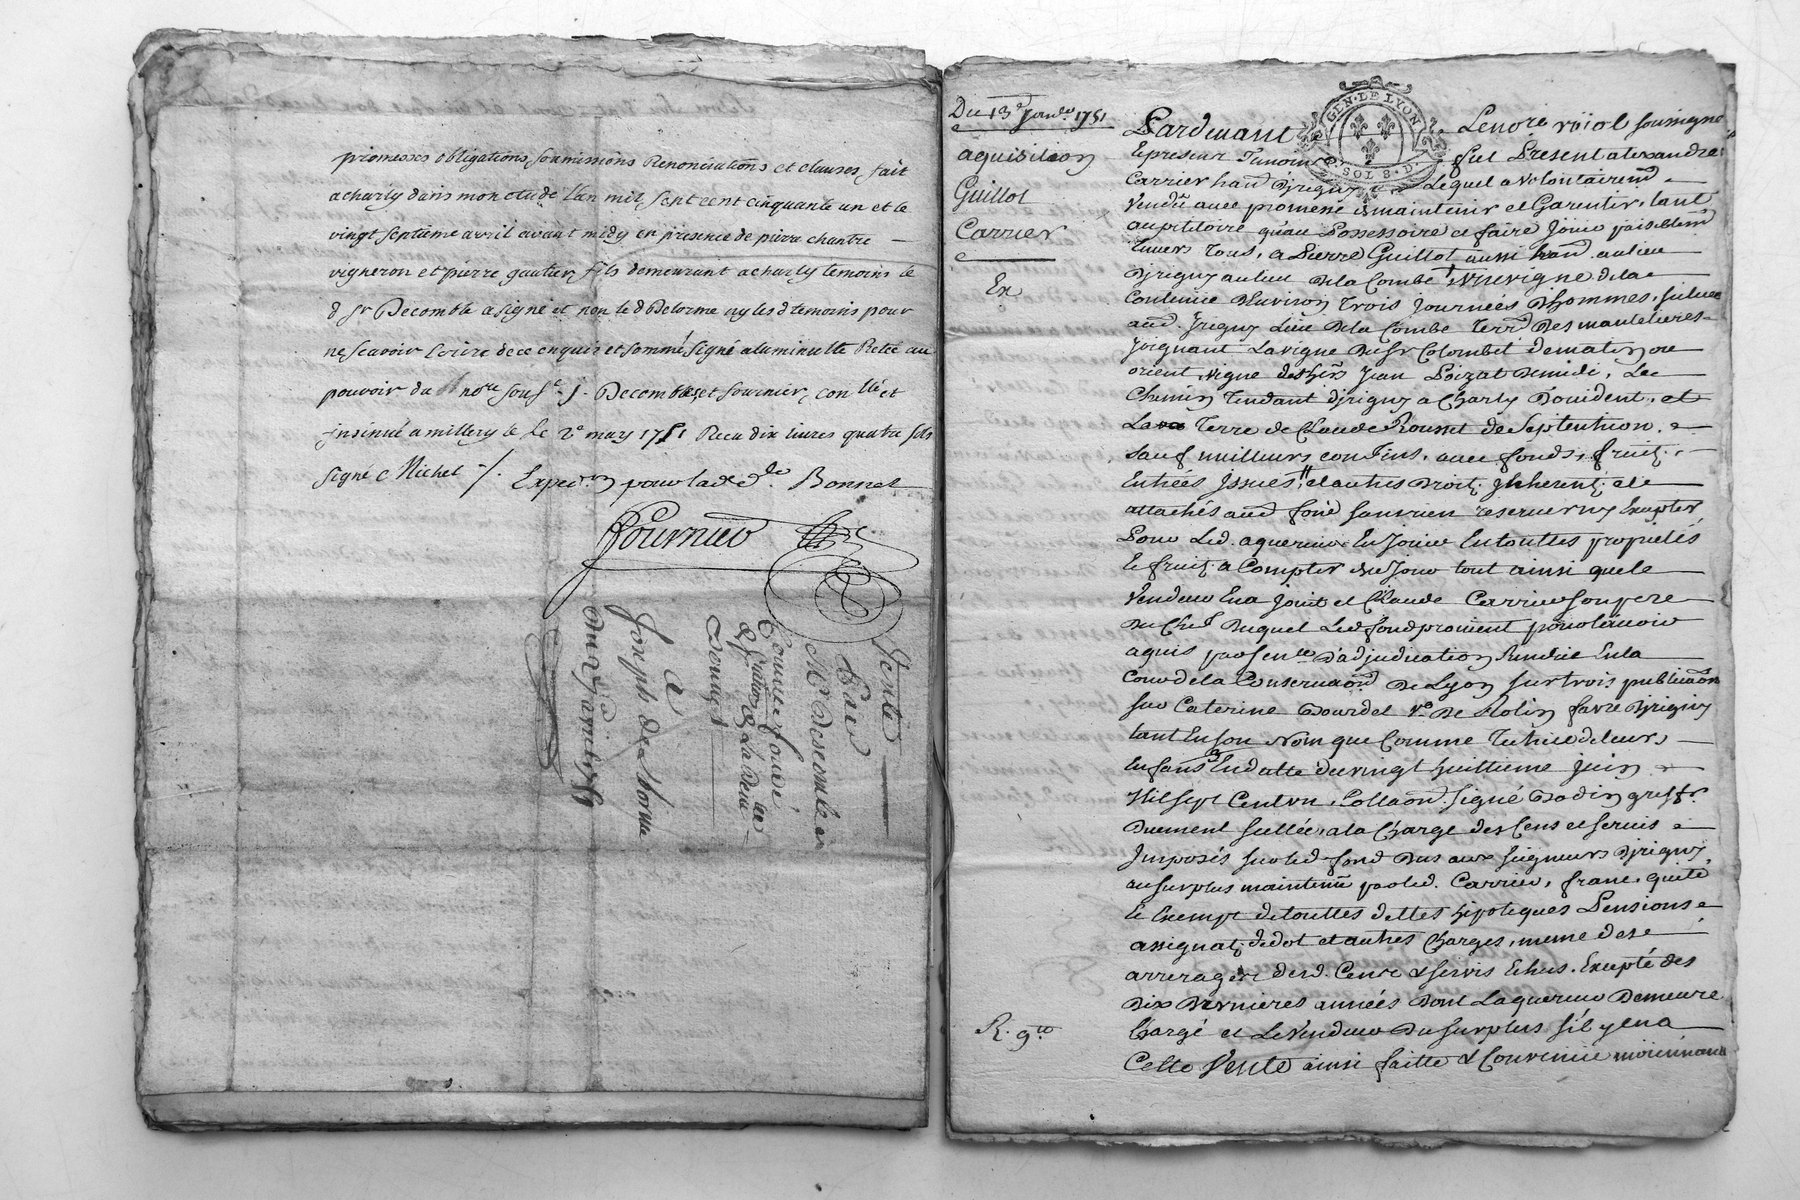 promesses obligations, soumissions Renonciations et clauses, fait
a charly dans mon etude L'an mil sept cent cinquante un et le
vingt septieme avril avant midy en presence de pierre chantre
vigneron et pierre gautier fils demeurant a charly temoins le
d sr Decomble a signé et non led Delorme ny les d temoins pour
ne scavoir Ecrire de ce enquis et sommé signé a la minutte Retée au
pouvoir du nore sousé Decombles, et fournier, con llé et
insinué a millery le 2e may 1751 Reçu dix livres quatre sols
signé Michel Expedon pour lad. dlle Bonnet
fournier
Vente
Par
Mr Descombles
a
Joseph de Lorme
Du 27 avril 1751
Du 13e Janv. 1751
aquisition
Guillot
Carrier
Ex
GEN. DE LYON
SOL 8 D.
Pardevant Le nore soussigné
Et present Temoins fut Present alexandre
Carrier hand D'jrigny Lequel a volontairemd
Vendu avec promesse de maintenir et Garentir, tant
au petitoire qu'au Possessoire et faire Jouir paisiblemt
Envers Tous, a Pierre Guillot aussi hand. au lieu
D'jrigny au lieu De la Combe Une vigne de la
Contenue D'environ Trois Journées D'hommes, située
aud. Jrigny Lieu De la Combe Terrd Des mantelieres
Joignant La vigne Du Sr Colombet de matin ou
orient vigne des hers Jean Poizat De midi, Le
Chemin Tendant D'jrigny a Charly D'occident, et
La Terre de Claude Rousset de Septentrion,
Sauf meilleurs confins, avec fonds, fruits,
Entrées Issues, et autres Droits Inherents et
attachés aud fond sans rien reserver ny Excepter
Pour Led. aquereur En Jouir En touttes proprietés
et fruits a Compter de ce Jour tout ainsi que le
Vendeur En a Jouit et Claude Carrier son pere
Du Chef Duquel Led fond provient pour l'avoir
aquis par Sence D'adjudication Rendue En la
Cour de la Conservaond. De Lyon sur trois publications
sur Caterine Bourdel ve. De Rolin favre D'jrigny
tant En son Nom que Comme Tutrice de leurs
Enfans En datte du vingt huittieme Juin
Mil sept Cent un, Collaond. signé Bodin greffr.
Duement scellée, a la Charge des Cens et servis
Imposés sur led fond Dus aux Seigneurs D'jrigny,
au surplus maintenue par led. Carrier, franc, quitte
et Exempt de touttes dettes hipoteques Pensions
assignats de dot et autres Charges, meme des
arrerages desd. Cens & servis Echus. Excepté des
Dix Dernieres années Dont L'aquereur Demeure
Chargé et Le Vendeur Du surplus s'il y en a
Cette Vente ainsi faitte & Convenüe moiennant